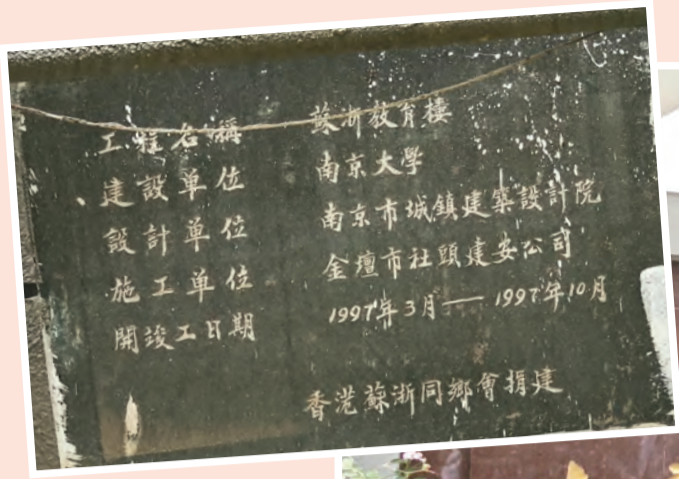 工程名稱 蘇浙教育樓
建設单位 南京大學
設計单位 南京市城鎮建築設計院
施工单位 金壇市社頭建安公司
開竣工日期 1997年3月——1997年10月
香港蘇浙同鄉會捐建